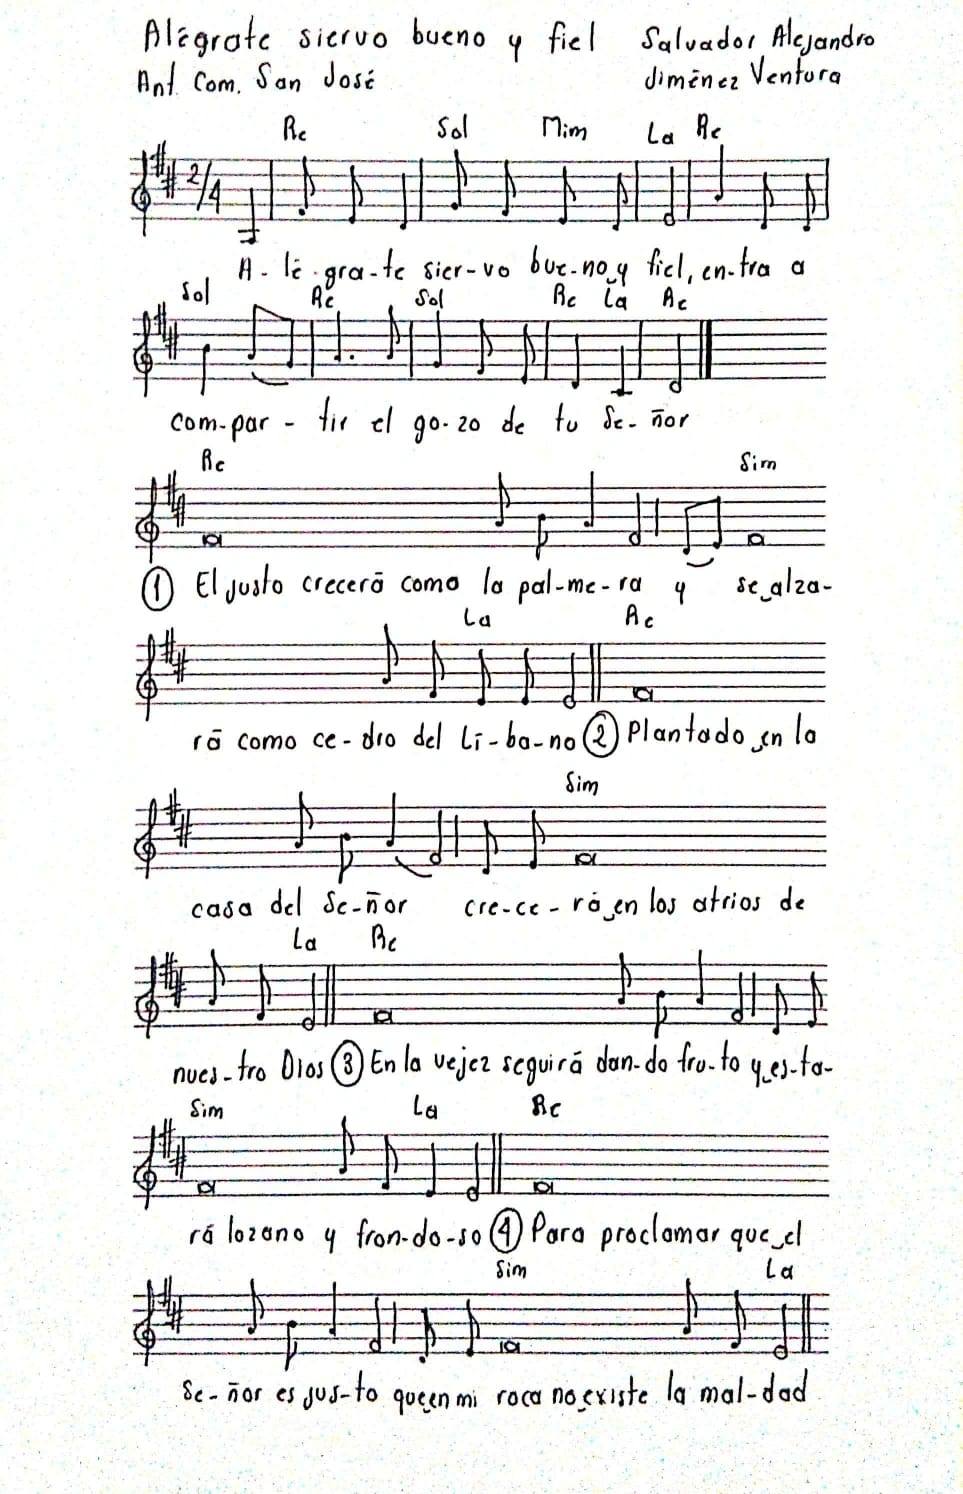 Alégrate siervo bueno y fiel Salvador Alejandro
Ant. Com. San José Jiménez Ventura
Re Sol Mim La Re
2/4
A-lé-gra-te sier-vo bue-no y fiel, en-tra a
Sol Re Sol Re La Re
com-par-tir el go-zo de tu Se-ñor
Re Sim
① El justo crecerá como la pal-me-ra y se alza-
La Re
rá como ce-dro del Lí-ba-no ② Plantado en la
Sim
casa del Se-ñor cre-ce-rá en los atrios de
La Re
nues-tro Dios ③ En la vejez seguirá dan-do fru-to y es-ta-
Sim La Re
rá lozano y fron-do-so ④ Para proclamar que el
Sim La
Se-ñor es jus-to que en mi roca no existe la mal-dad